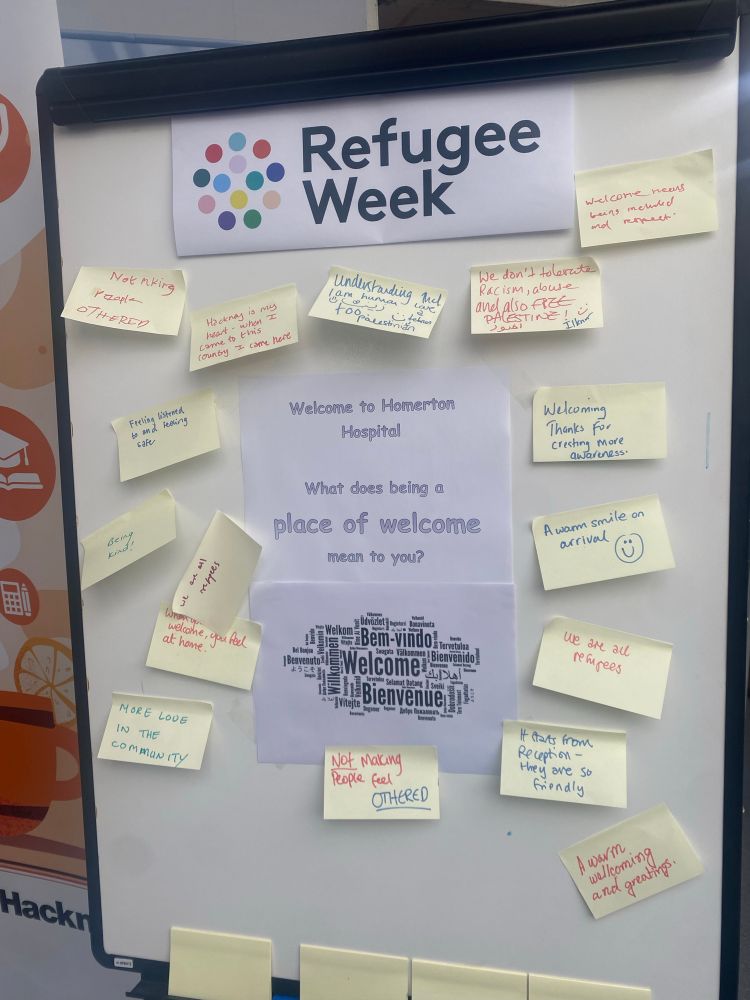 Refugee
Week
Welcome means
being included
and respect.
Not making
People
OTHERED
Hackney is my
heart - when I
came to this
country I came here
Understanding that
I am human
too
palestinian
We don't tolerate
Racism, abuse
and also FREE
PALESTINE!
Feeling listened
to and feeling
safe
Welcome to Homerton
Hospital
What does being a
place of welcome
mean to you?
Welcoming
Thanks for
creating more
awareness.
Being
kind!
we are all
refugees
A warm smile on
arrival
welcome, you feel
at home.
We are all
refugees
Üdvözlet
Welkom
Bem-vindo
Tervetuloa
Välkommen
Benvenuto
Willkommen
Welcome
Bienvenido
Selamat Datang
Vítejte
Bienvenue
Sveiki
Добро Пожаловать
MORE LOVE
IN THE
COMMUNITY
NOT Making
People feel
OTHERED
It starts from
Reception -
they are so
friendly
A warm
wellcoming
and greatings.
Hackn